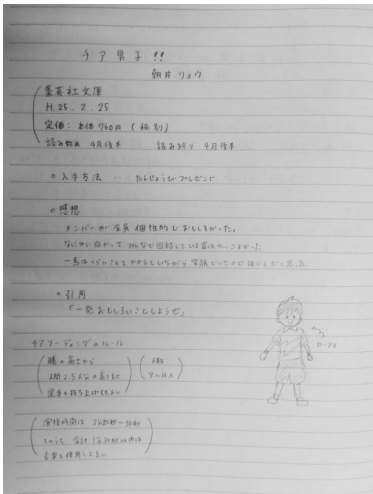 チア男子!!
朝井リョウ
集英社文庫
H.25.2.25
定価:本体760円(税別)
読み始め 4月後半 読み終り 4月後半
○入手方法 たんじょうびプレゼント
○感想
メンバーが全員個性的でおもしろかった。
なにかに向かってみんなで団結している姿はかっこよかった
一馬はつらいことをかかえていながら笑顔でいたので強いんだと思った
○引用
「一発おもしろいことしようぜ」
チアリーディングのルール
膝の高さから
2.5人の高さまで
選手を持ち上げる
人数
演技時間は 2分20秒〜
そのうち 合計1分30秒以内は
音楽を使用してよい